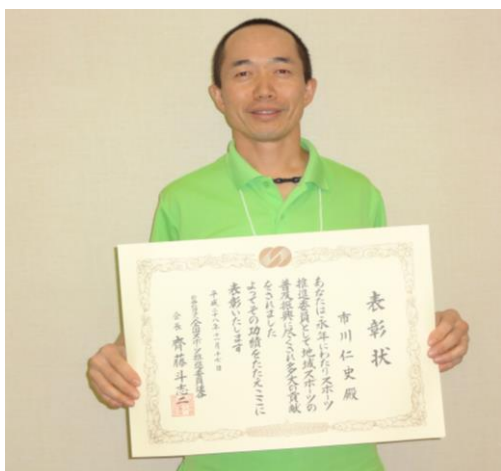 表彰状
市川仁史殿
あなたは永年にわたりスポーツ
推進委員として地域スポーツの
普及振興に尽くされ多大の貢献
をされました
よってその功績をたたえここに
表彰いたします
平成二十八年十一月十七日
公益社団法人全国スポーツ推進委員連合
会長 齊藤斗志二